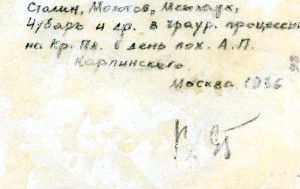 Сталин, Молотов, Межлаук,
Чубарь и др. в траур. процессии
на Кр. Пл. в день пох. А.П.
Карпинского
Москва 1936